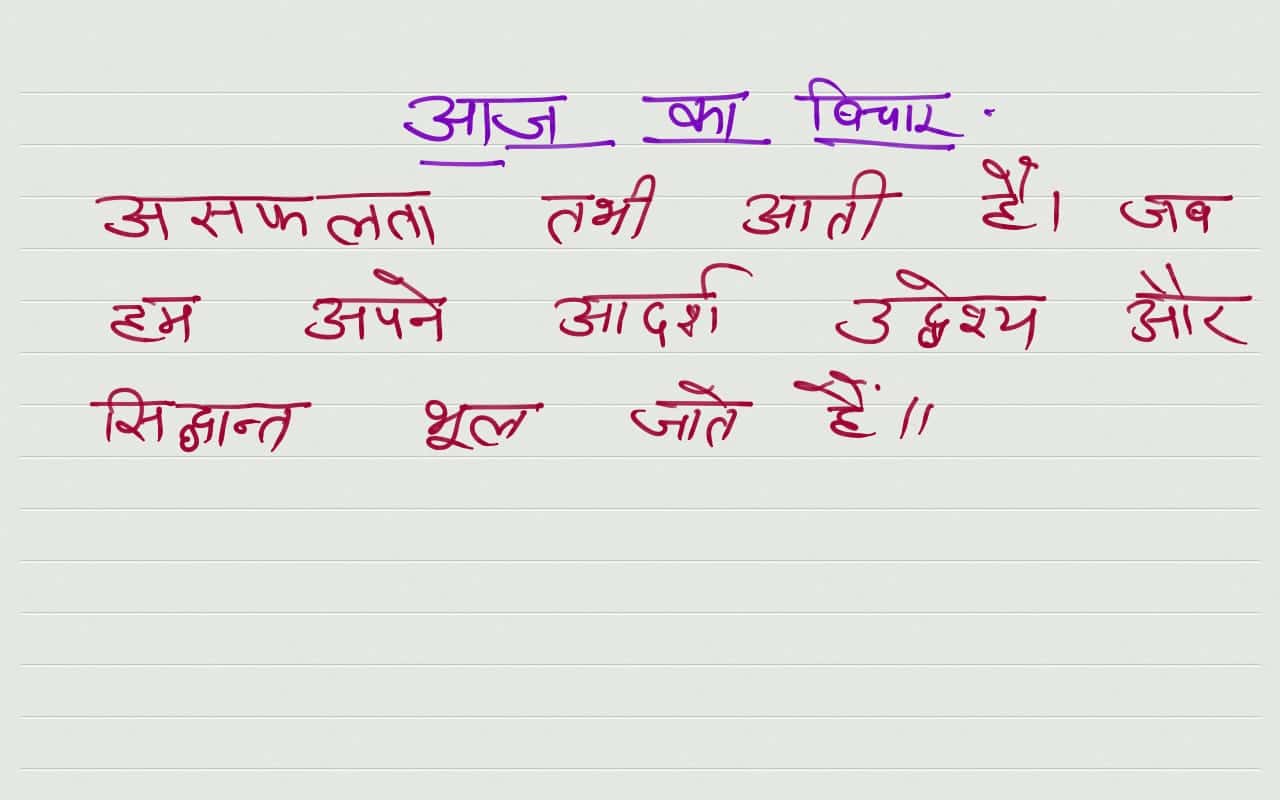 आज का बिचार.
असफलता तभी आती है। जब
हम अपने आदर्श उद्देश्य और
सिद्धान्त भूल जाते हैं॥